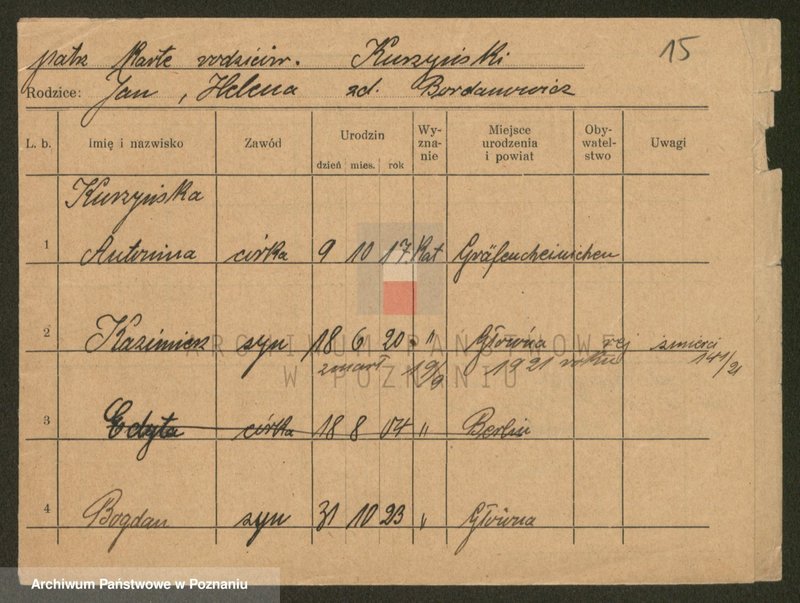 patrz Kartę rodziców. Kurzyński
15
Rodzice: Jan, Helena zd. Bordanowicz
L. b. Imię i nazwisko Zawód Urodzin dzień mies. rok Wy-zna-nie Miejsce urodzenia i powiat Oby-watel-stwo Uwagi
Kurzyńska
1 Antonina córka 9 10 17 Kat Gräfencheinichen
2 Kazimierz syn 18 6 20 " Główna rej śmierci
zmarł 19/9 1921 roku 141/21
3 Edyta córka 18 8 04 " Berlin
4 Bogdan syn 31 10 23 " Główna
ARCHIWUM PAŃSTWOWE
W POZNANIU
Archiwum Państwowe w Poznaniu